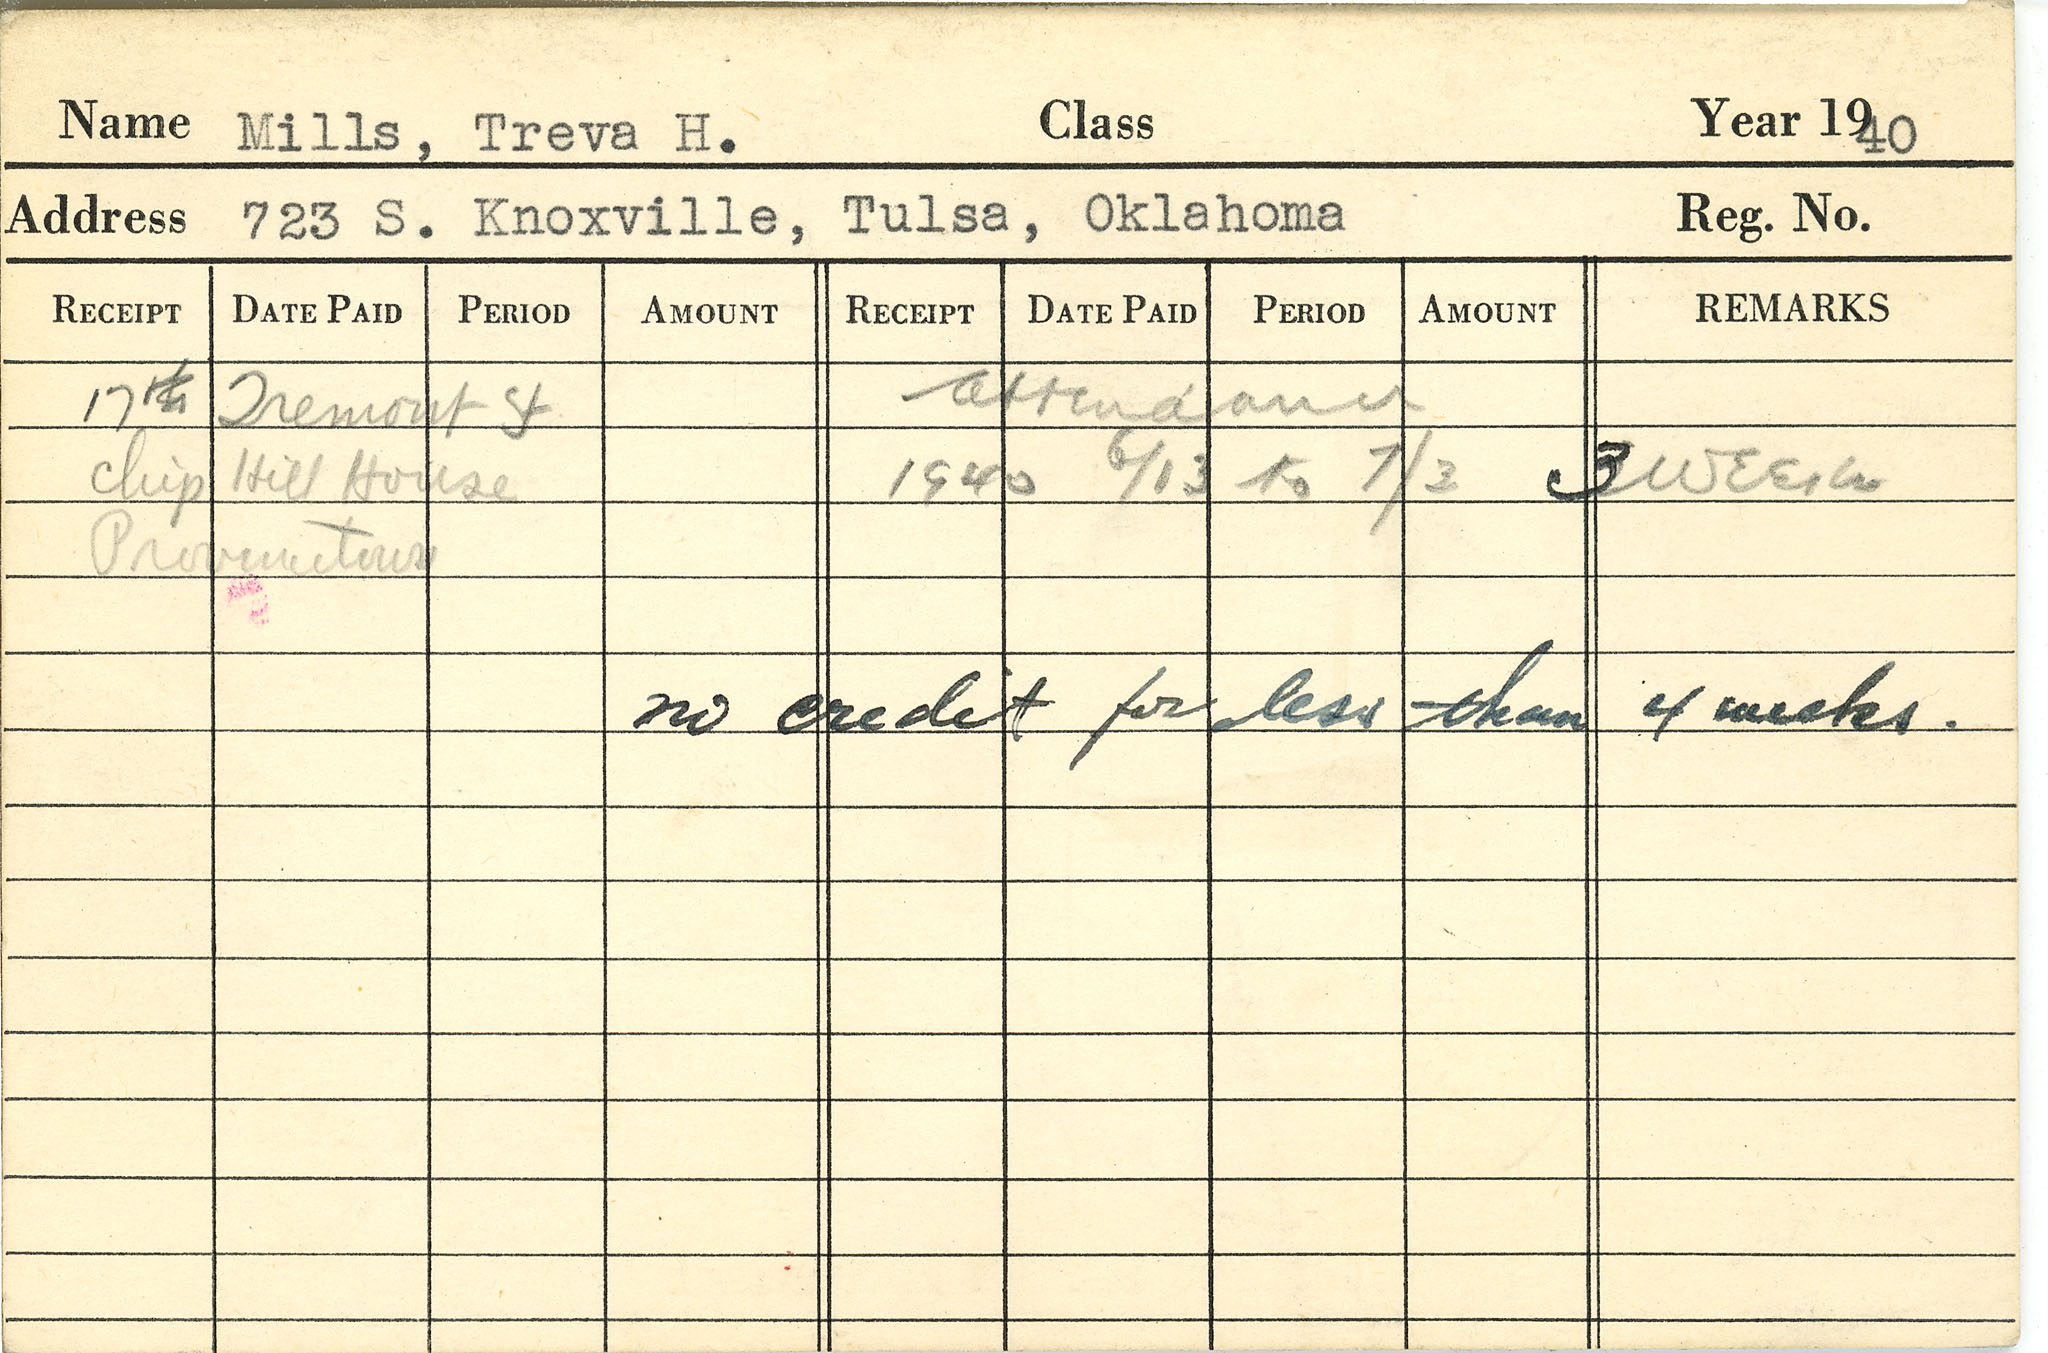 Name Mills, Treva H. Class Year 1940
Address 723 S. Knoxville, Tulsa, Oklahoma Reg. No.
RECEIPT DATE PAID PERIOD AMOUNT RECEIPT DATE PAID PERIOD AMOUNT REMARKS
17th Tremont St Attendance
Ship Hill House 1940 6/13 to 7/3 3 WEEKs
Provincetown
no credit for less than 4 weeks.